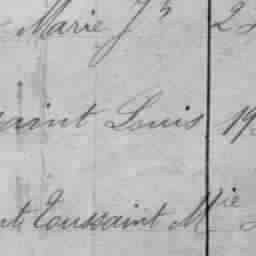 Marie Jh 2
saint Louis 19
t. Toussaint Mie